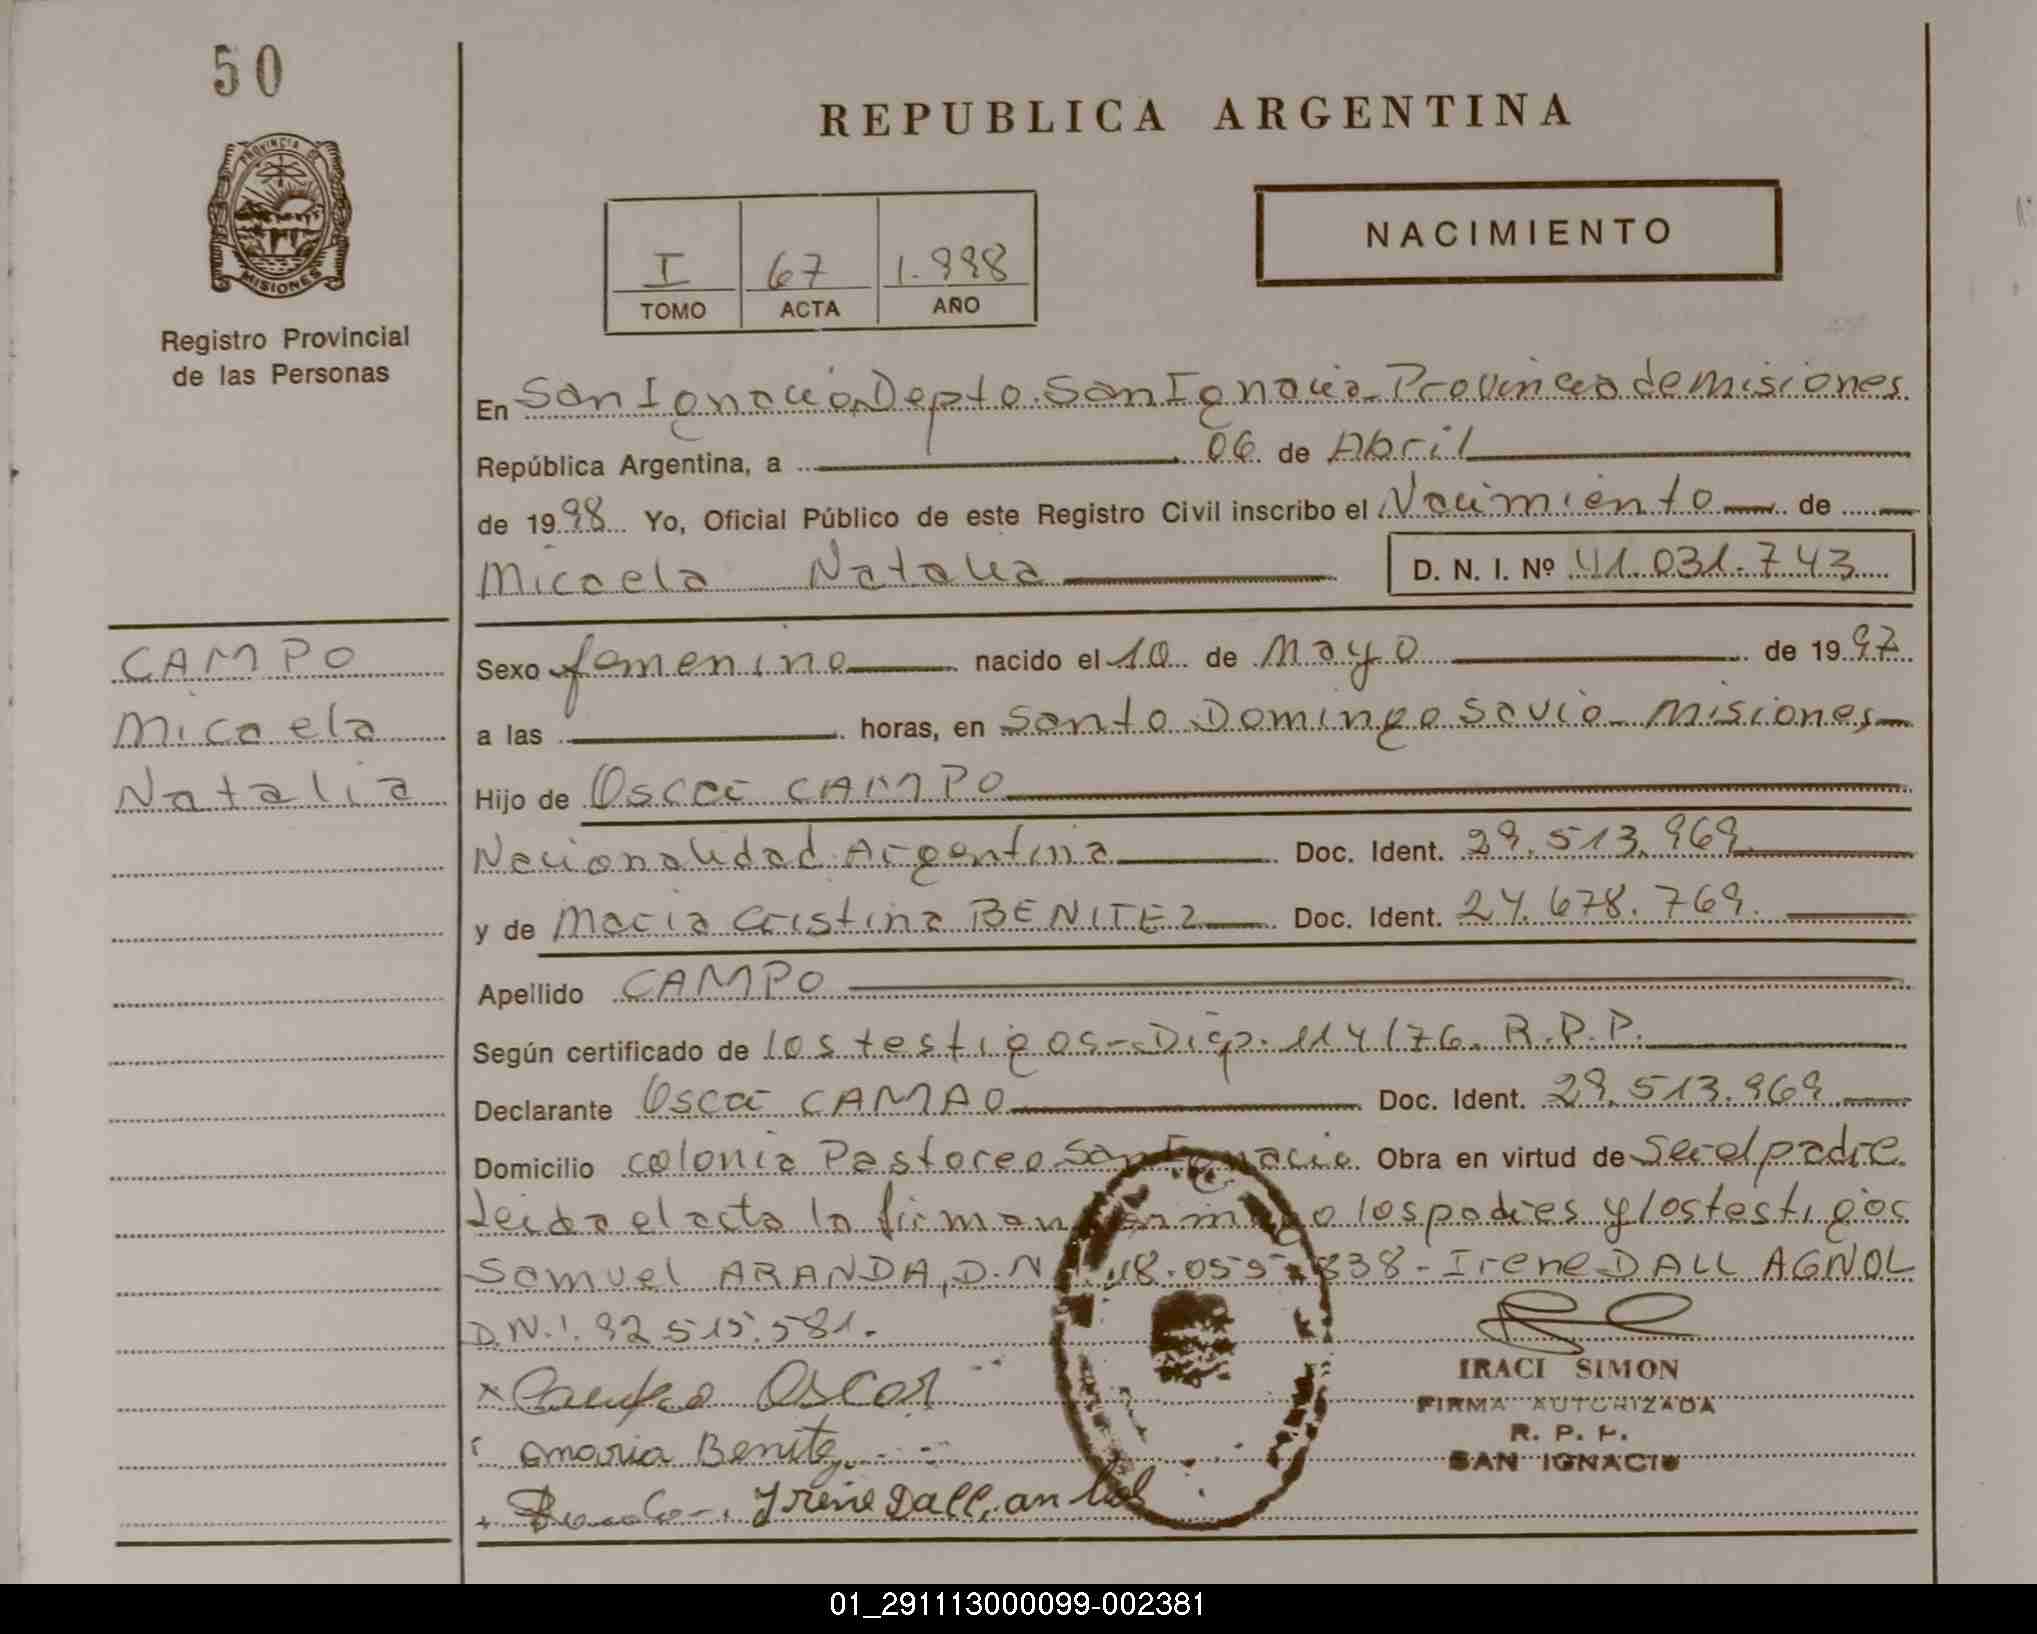 50
REPUBLICA ARGENTINA
PROVINCIA DE
MISIONES
NACIMIENTO
I 67 1.998
TOMO ACTA AÑO
Registro Provincial
de las Personas
En San Ignacio, Depto. San Ignacio. Provincia de misiones.
República Argentina, a 06 de Abril
de 1998 Yo, Oficial Público de este Registro Civil inscribo el Nacimiento de
Micaela Natalia D. N. I. Nº 41.031.743
CAMPO
Micaela
Natalia
Sexo femenino nacido el 10 de Mayo de 1997
a las horas, en Santo Domingo Savio Misiones
Hijo de Oscar CAMPO
Nacionalidad Argentina Doc. Ident. 29.513.969
y de Maria Cristina BENITEZ Doc. Ident. 24.678.769.
Apellido CAMPO
Según certificado de los testigos - Disp. 114/76. R.P.P.
Declarante Oscar CAMAO Doc. Ident. 29.513.969
Domicilio colonia Pastoreo San Ignacio. Obra en virtud de Ser el padre.
Leida el acta la firman los padres y los testigos
Samuel ARANDA, D.N.I. 18.055.838 - Irene DALL AGNOL
D.N.I. 92.515.581.
x Campo Oscar
Maria Benitez
Irene Dall
IRACI SIMON
FIRMA AUTORIZADA
R. P. P.
SAN IGNACIO
01_291113000099-002381